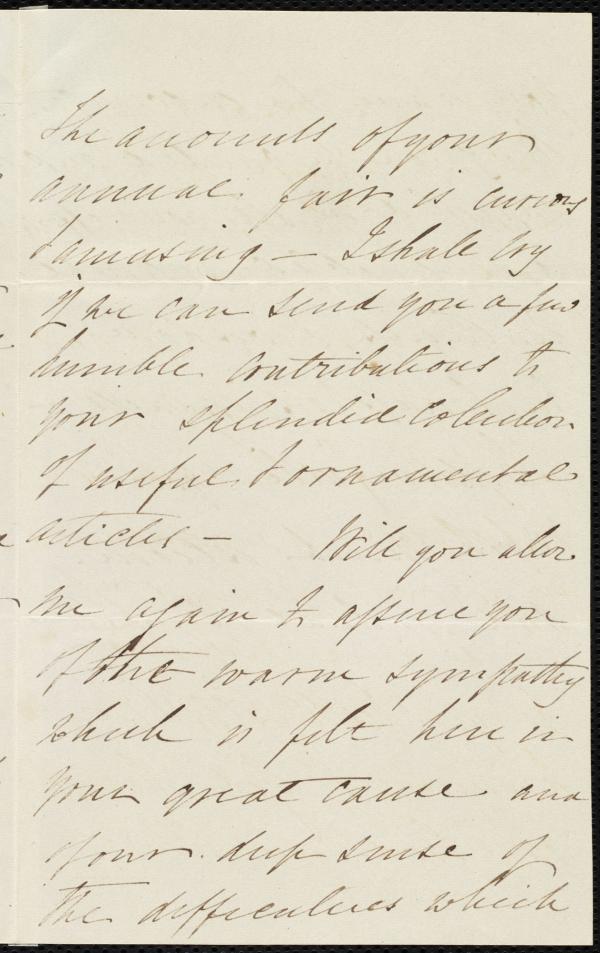 The accounts of your
annual fair is curious
& amusing – I shall try
if we can send you a few
humble contributions to
your splendid collection
of useful & ornamental
articles – Will you allow
me again to assure you
of the warm sympathy
which is felt here in
your great cause and
of our deep sense of
the difficulties which